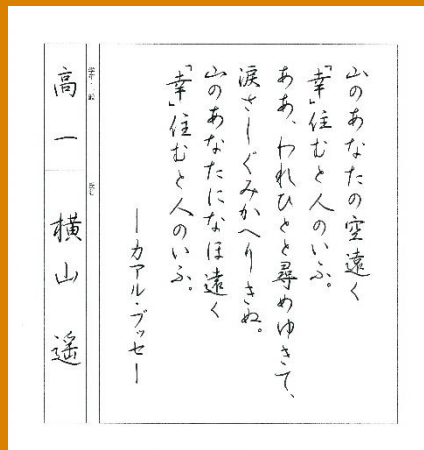 山のあなたの空遠く
「幸」住むと人のいふ。
ああ、われひとと尋めゆきて、
涙さしぐみかへりきぬ。
山のあなたになほ遠く
「幸」住むと人のいふ。
―カアル・ブッセ―
高一
横山遥